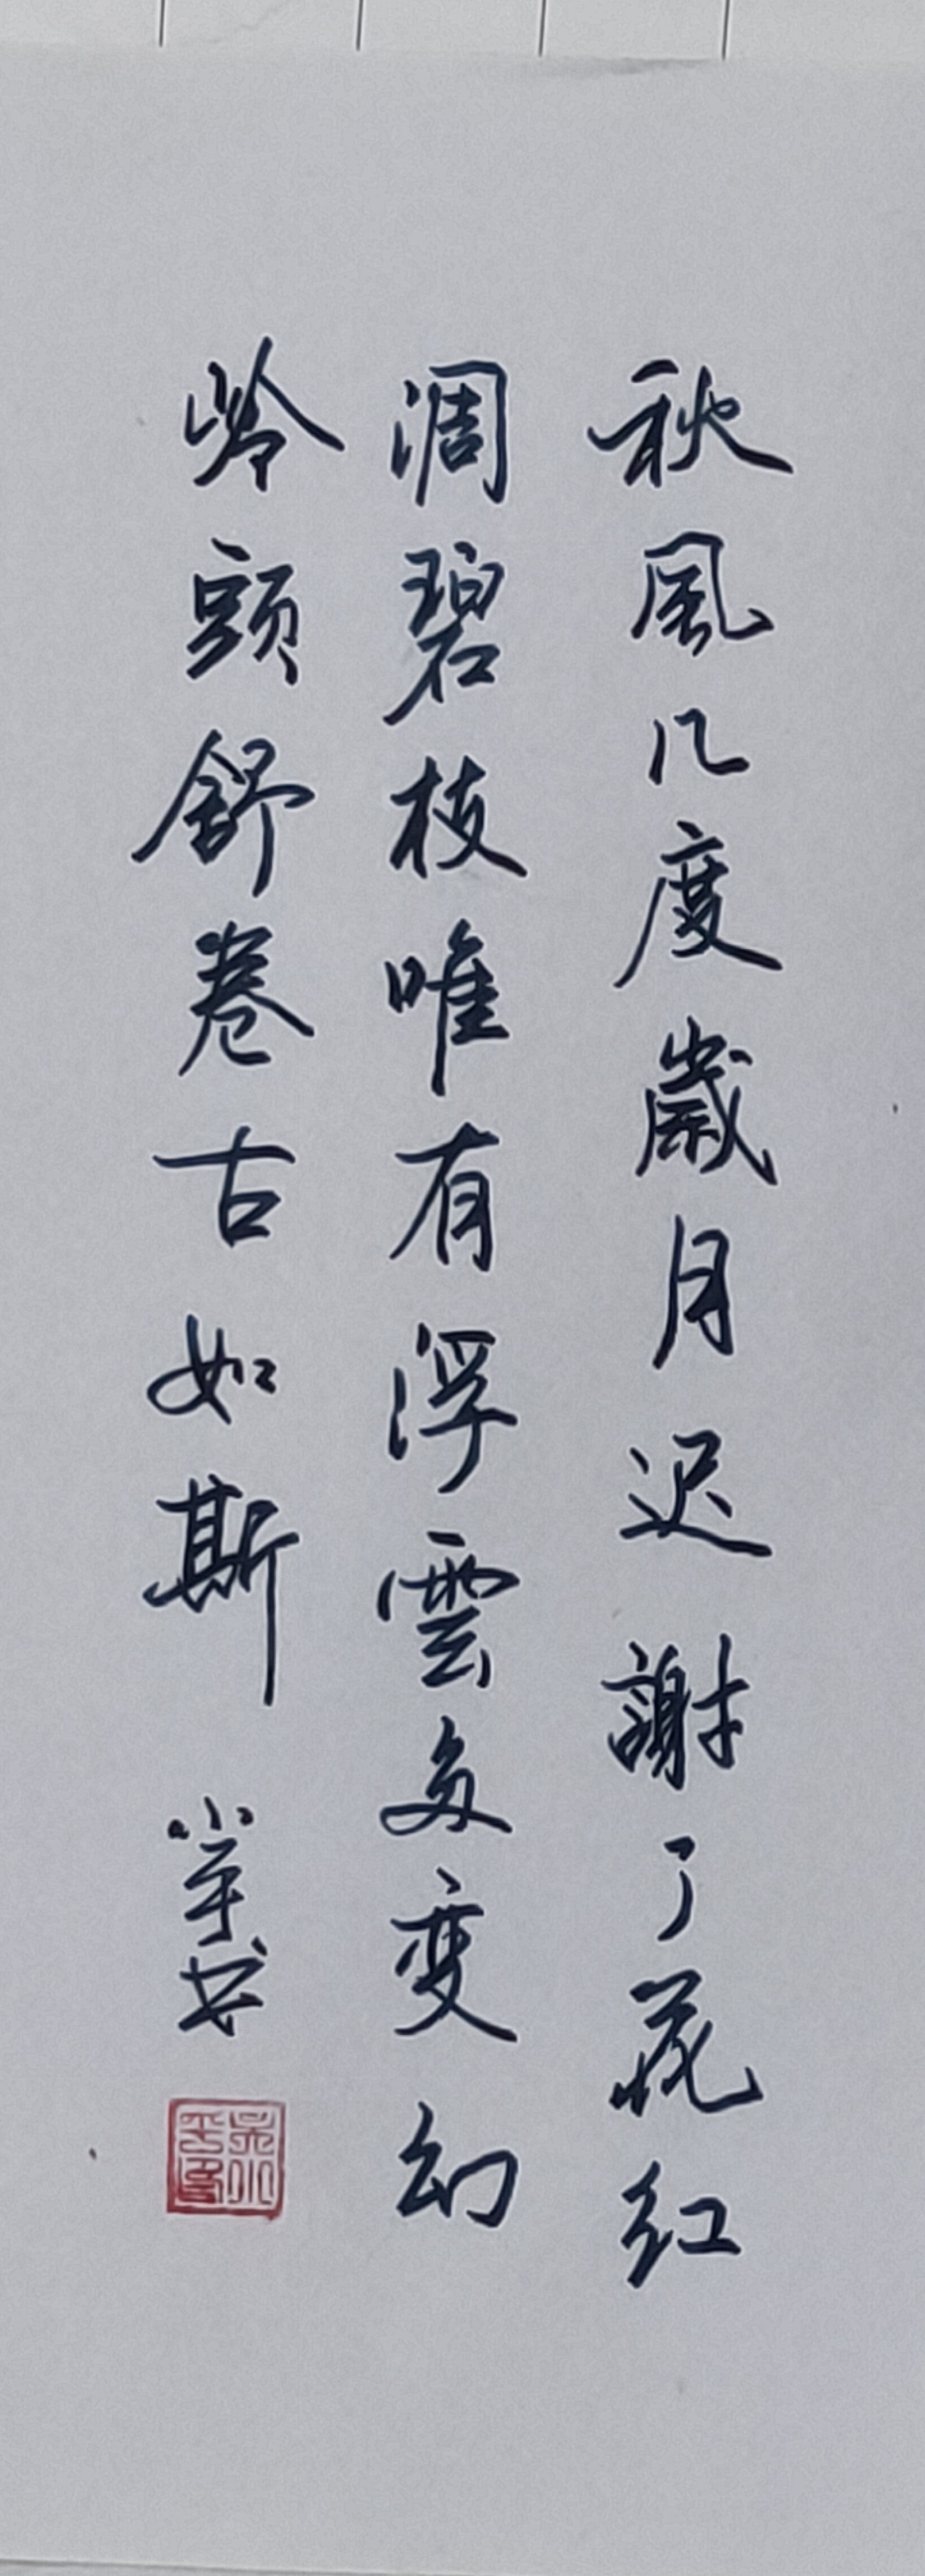 秋風几度歲月迟謝了花红
凋碧枝唯有浮雲多变幻
岭頭舒卷古如斯